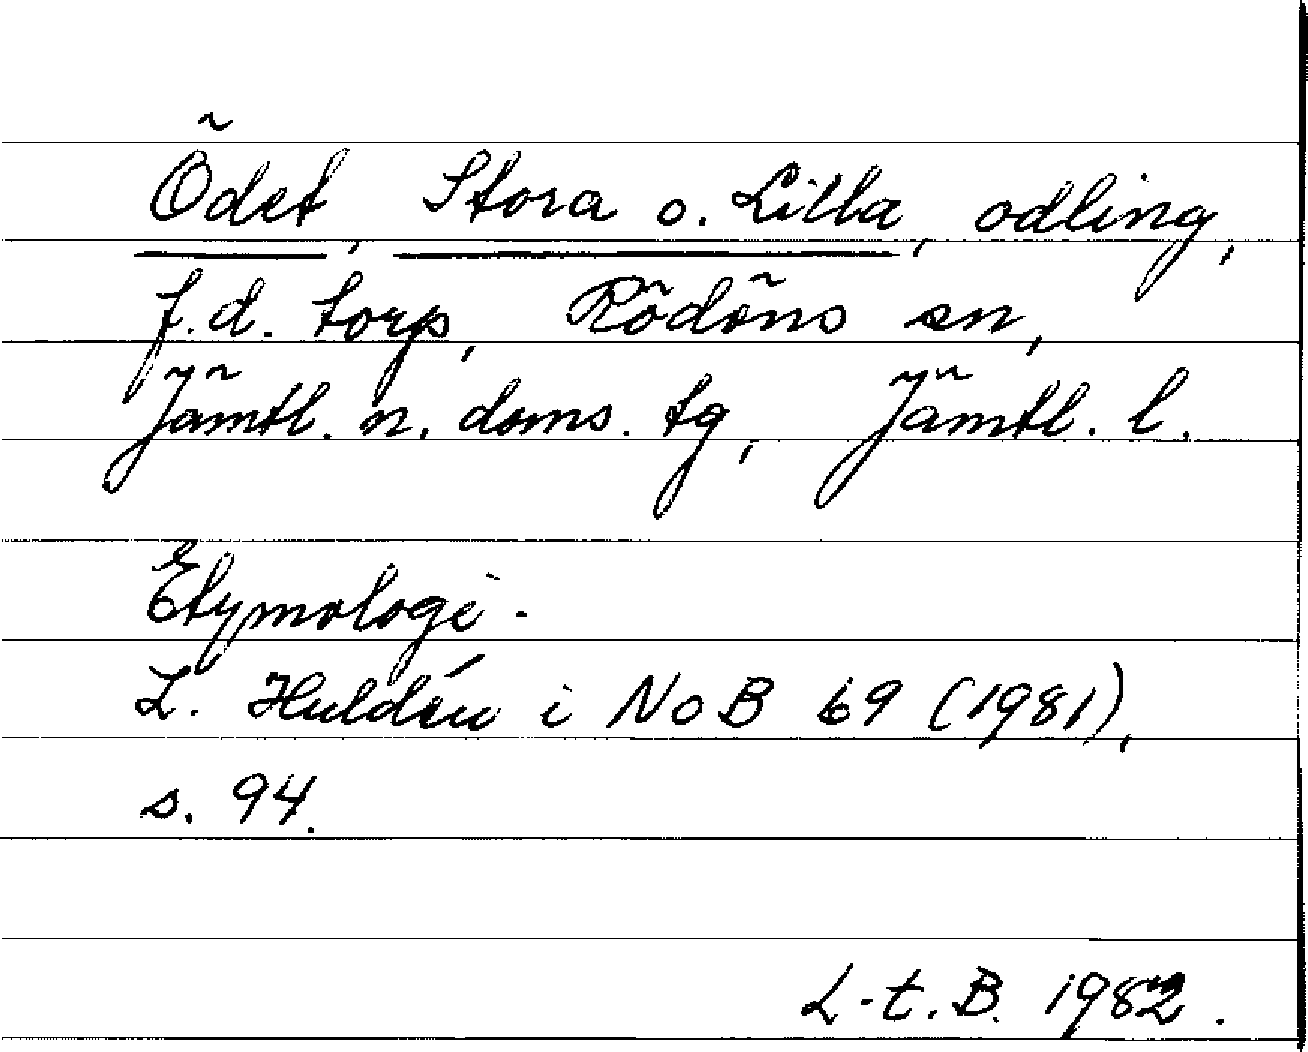 Ödet, Stora o. Lilla, odling,
f.d. torp, Rödöns sn,
Jämtl. n. doms. tg, Jämtl. l.
Etymologi.
L. Huldén i NoB 69 (1981),
s. 94.
L-t.B. 1982.